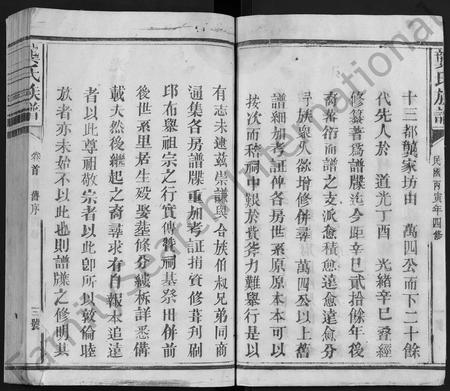 龔氏族譜
民國丙寅年四修
十三都龔家坊由 萬四公而下二十餘
代先人於 道光丁酉 光緒辛巳疊經
修纂著爲譜牒迄今距辛巳貳拾餘年後
裔蕃衍而譜之支派愈積愈遠愈遠愈分
尋族衆久欲增修併尋 萬四公以上舊
譜細加考証俾各房世系原原本本可以
按次而稽祠中艱於貲斧力難舉行是以
有志未逮茲崇謙與合族伯叔兄弟同商
通集各房譜牒重加考証捐貲修葺刋刷
邱布羣祖宗之行實傳贊祠基祭田併前
後世系里居生殁娶塟條分縷柝詳悉備
載大然後繼起之裔尋求有自報本追遠
者以此尊祖敬宗者以此卽所以敦倫睦
族者亦未始不以此也則譜牒之修明其
龔氏族譜
卷首 舊序
三號
FamilySearch International